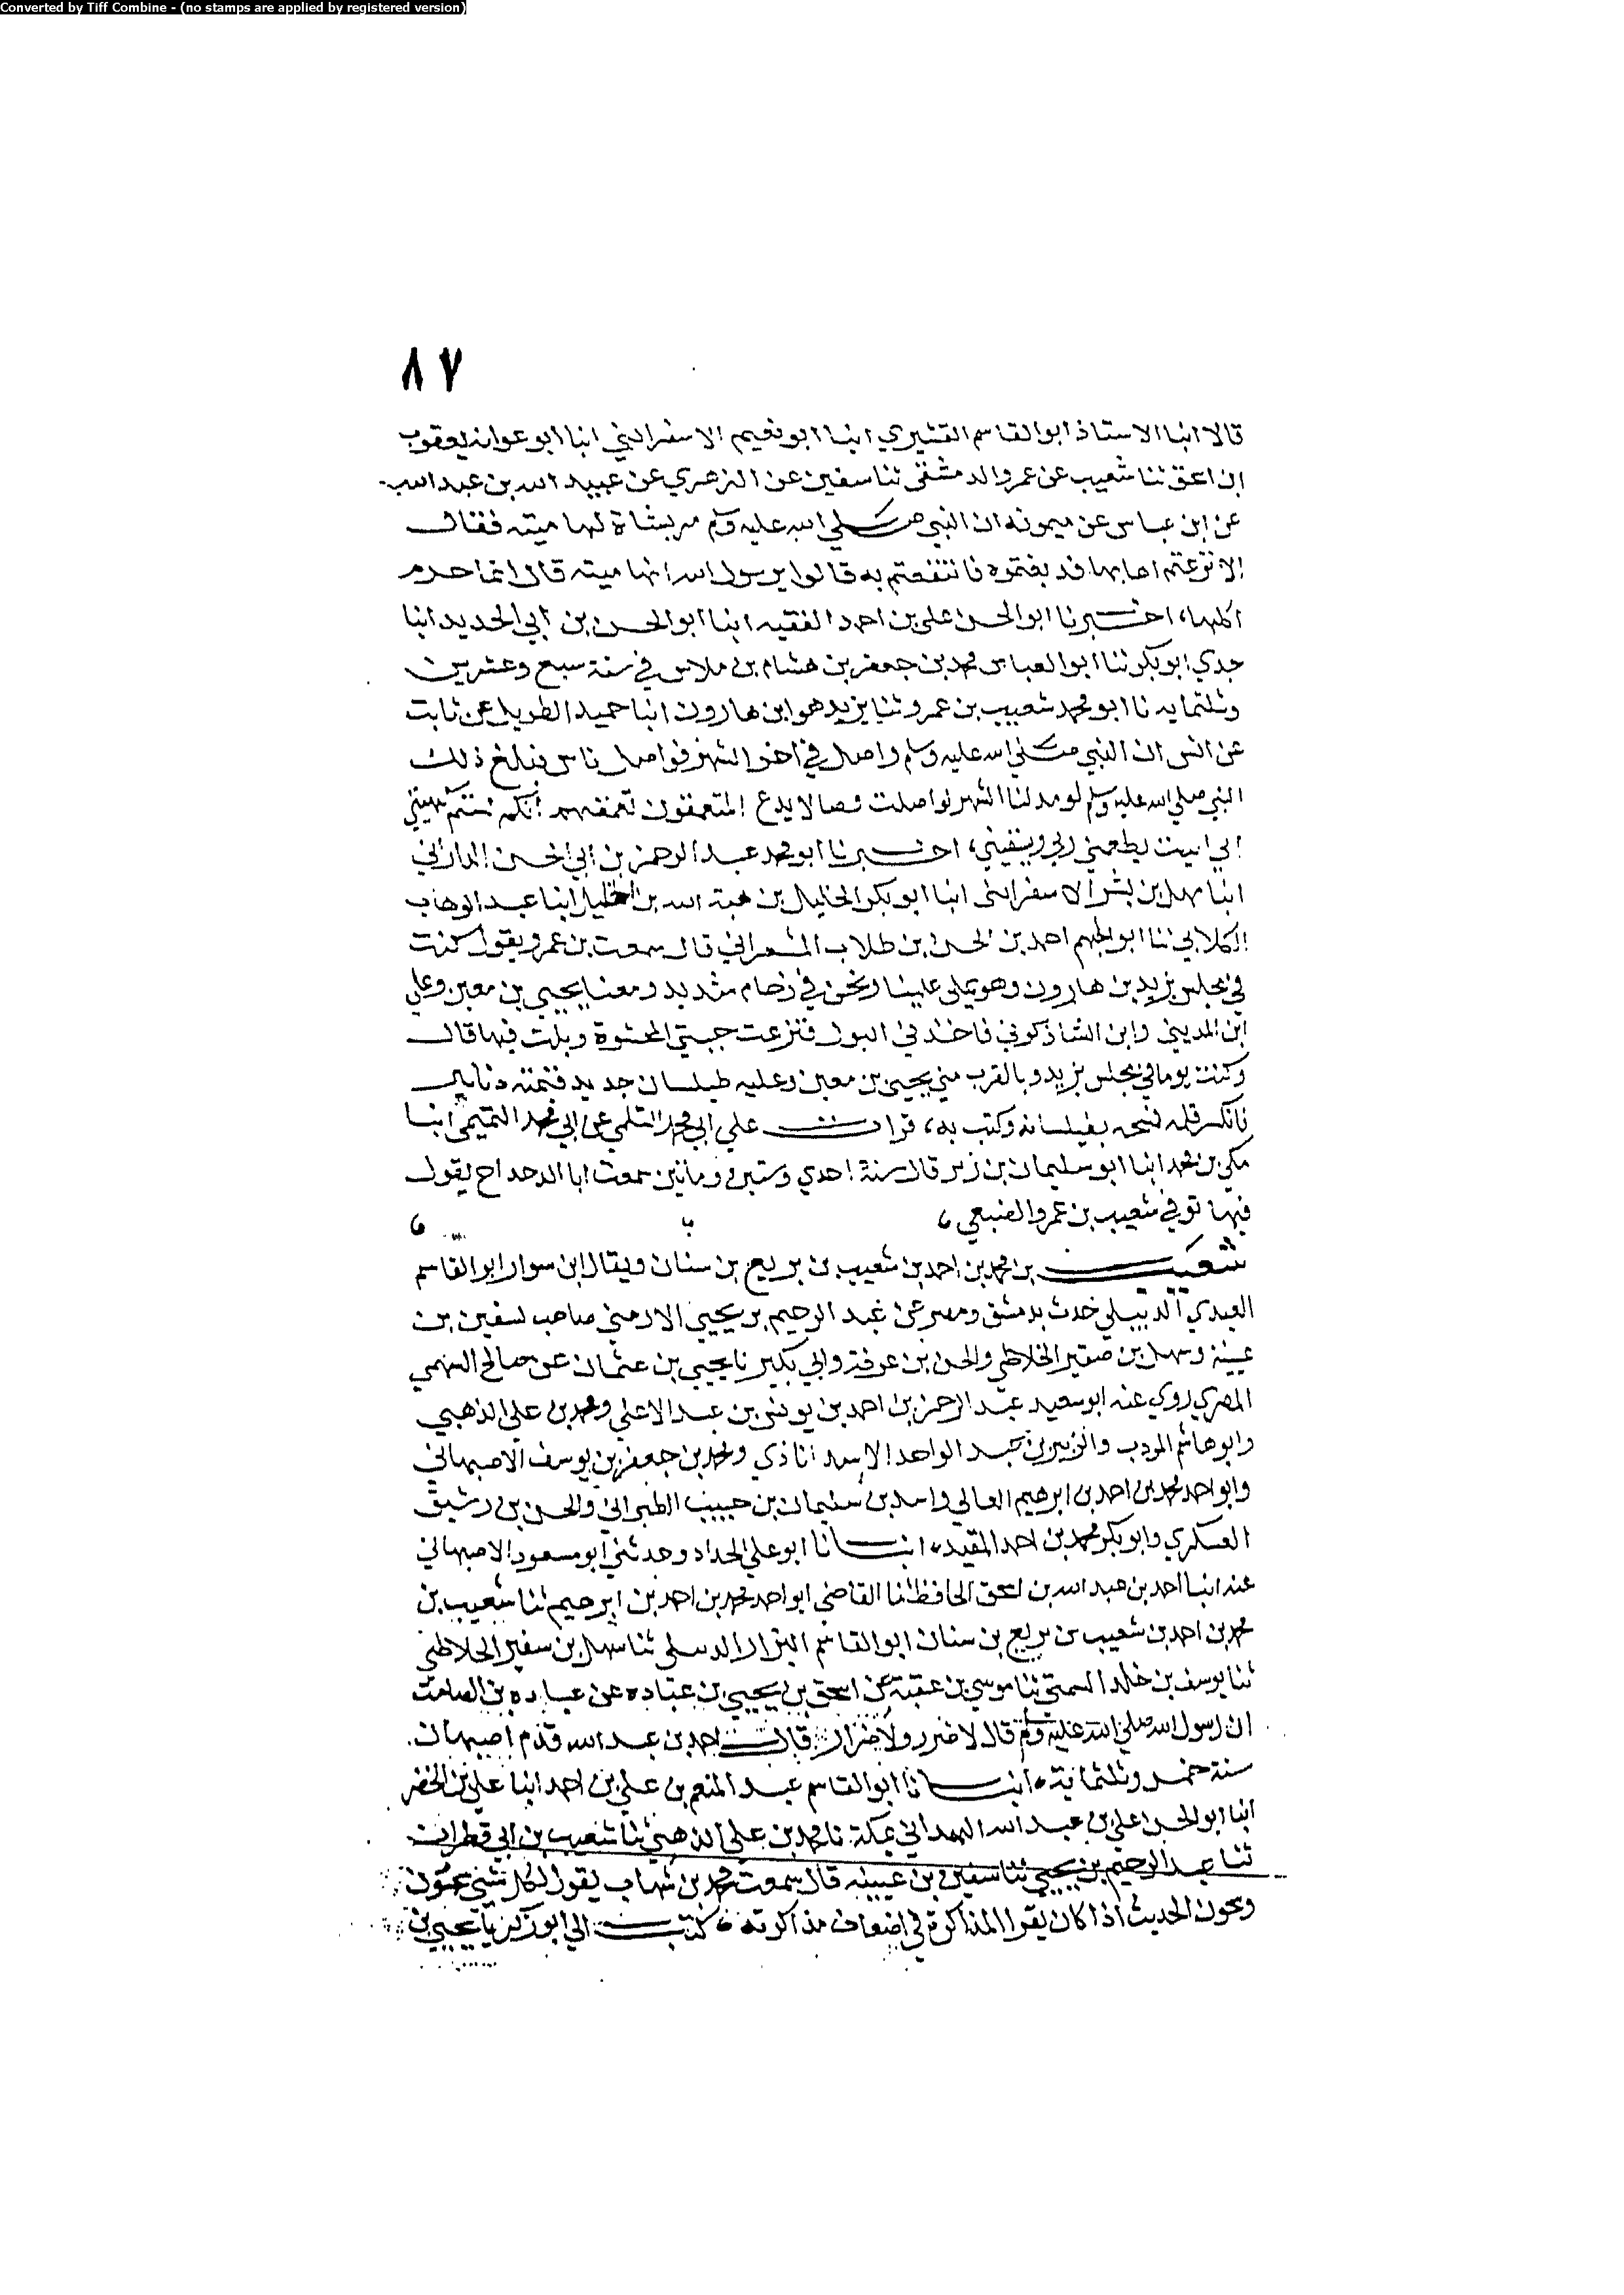 Converted by Tiff Combine - (no stamps are applied by registered version)
٨٧
قالا انبا الاستاذ ابو القاسم القشيري انبا ابو نعيم الاسفرايني انبا ابو عوانه يعقوب
ابن اسحق ثنا شعيب عن عمرو الدمشقي ثنا سفين عن الزهري عن عبيد الله بن عبد الله
عن ابن عباس عن ميمونه ان النبي صلي الله عليه وسلم مر بشاة لها ميته فقال
الا نزعتم اهابها فدبغتموه فانتفعتم به قالوا يرسول الله انها ميته قال انما حرم
اكلها، اخبرنا ابو الحسن علي بن احمد الفقيه انبا ابو الحسن بن ابي الحديد انبا
جدي ابو بكر ثنا ابو العباس محمد بن جعفر بن هشام بن ملاس في سنة سبع وعشرين
وثلثمايه نا ابو محمد شعيب بن عمرو ثنا يزيد هو ابن هارون انبا حميد الطويل عن ثابت
عن انس ان النبي صلي الله عليه وسلم واصل في اخر الشهر فواصل ناس فبلغ ذلك
النبي صلي الله عليه وسلم لو مد لنا الشهر لواصلت وصالا يدع المتعمقون تعمقهم انكم لستم كهيئتي
اني ابيت يطعمني ربي ويسقيني، اخبرنا ابو محمد عبد الرحمن بن ابي الحسن الداراني
انبا سهل بن بشر الاسفرايني انبا ابو بكر الخليل بن هبة الله بن الخليل انبا عبد الوهاب
الكلابي ثنا ابو الجهم احمد بن الحسن بن طلاب المشغراني قال سمعت بن عمرو يقول كنت
في مجلس يزيد بن هارون وهو يملي علينا ونحن في زحام شديد ومعنا يحيي بن معين وعلي
ابن المديني وابن الشاذكوني فاخذني البول فنزعت جبتي المحشوة وبلت فيها قال
وكنت يوما في مجلس يزيد وبالقرب مني يحيى بن معين وعليه طيلسان جديد قيمته دنانير
فانكسر قلمه فمسحه بطيلسانه وكتب به، قرات علي ابي محمد السلمي عن ابي محمد التميمي انبا
مكي بن محمد انبا ابو سليمان بن زبر قال سنة احدي وستين وماتين سمعت ابا الدحداح يقول
فيها توفي شعيب بن عمرو الضبعي،
شعيب بن محمد بن احمد بن شعيب بن بزيع بن سنان ويقال ابن سوار ابو القاسم
العبدي الديبلي حدث بدمشق ومصر عن عبد الرحيم بن يحيي الارمني صاحب لسفين بن
عيينة وسهل بن صقير الخلاطي والحسن بن عرفة وابي بكير نا يحيي بن عثمان عن صالح السهمي
المصري روي عنه ابو سعيد عبد الرحمن بن احمد بن يونس بن عبد الاعلي ومحمد بن علي الذهبي
وابو هاشم المودب والزبير بن عبد الواحد الاسداناذي ومحمد بن جعفر بن يوسف الاصبهاني
وابو احمد محمد بن احمد بن ابرهيم العسالي واسد بن سليمان بن حبيب الطبراني والحسن بن رشيق
العسكري وابو بكر محمد بن احمد المفيد، انبانا ابو علي الحداد وحدثني ابو مسعود الاصبهاني
عنه انبا احمد بن عبد الله بن اسحق الحافظ ثنا القاضي ابو احمد محمد بن احمد بن ابرهيم ثنا شعيب بن
محمد بن احمد بن شعيب بن بزيع بن سنان ابو القاسم البزار الدسلي ثنا سهل بن سقير الخلاطي
ثنا يوسف بن خالد السمتي ثنا موسي بن عقبة عن اسحق بن يحيي بن عباده عن عباده بن الصامت
ان رسول الله صلي الله عليه وسلم قال لا ضرر ولا ضرار قال احمد بن عبد الله قدم اصبهان
سنة خمس وثلثمائة، انبانا ابو القاسم عبد المنعم بن علي بن احمد انبا علي بن الخضر
انبا ابو الحسن علي بن عبد الله الهمداني بمكة نا محمد بن علي الذهبي ثنا شعيب بن ابي قطران
ثنا عبد الرحيم بن يحيي ثنا سفين بن عيينه قال سمعت محمد بن شهاب يقول لكل شي عيون
وعون الحديث اذا كان يقوا المذاكرة في اضعاف مذاكرته، كتب الي ابو زكريا يحيي بن